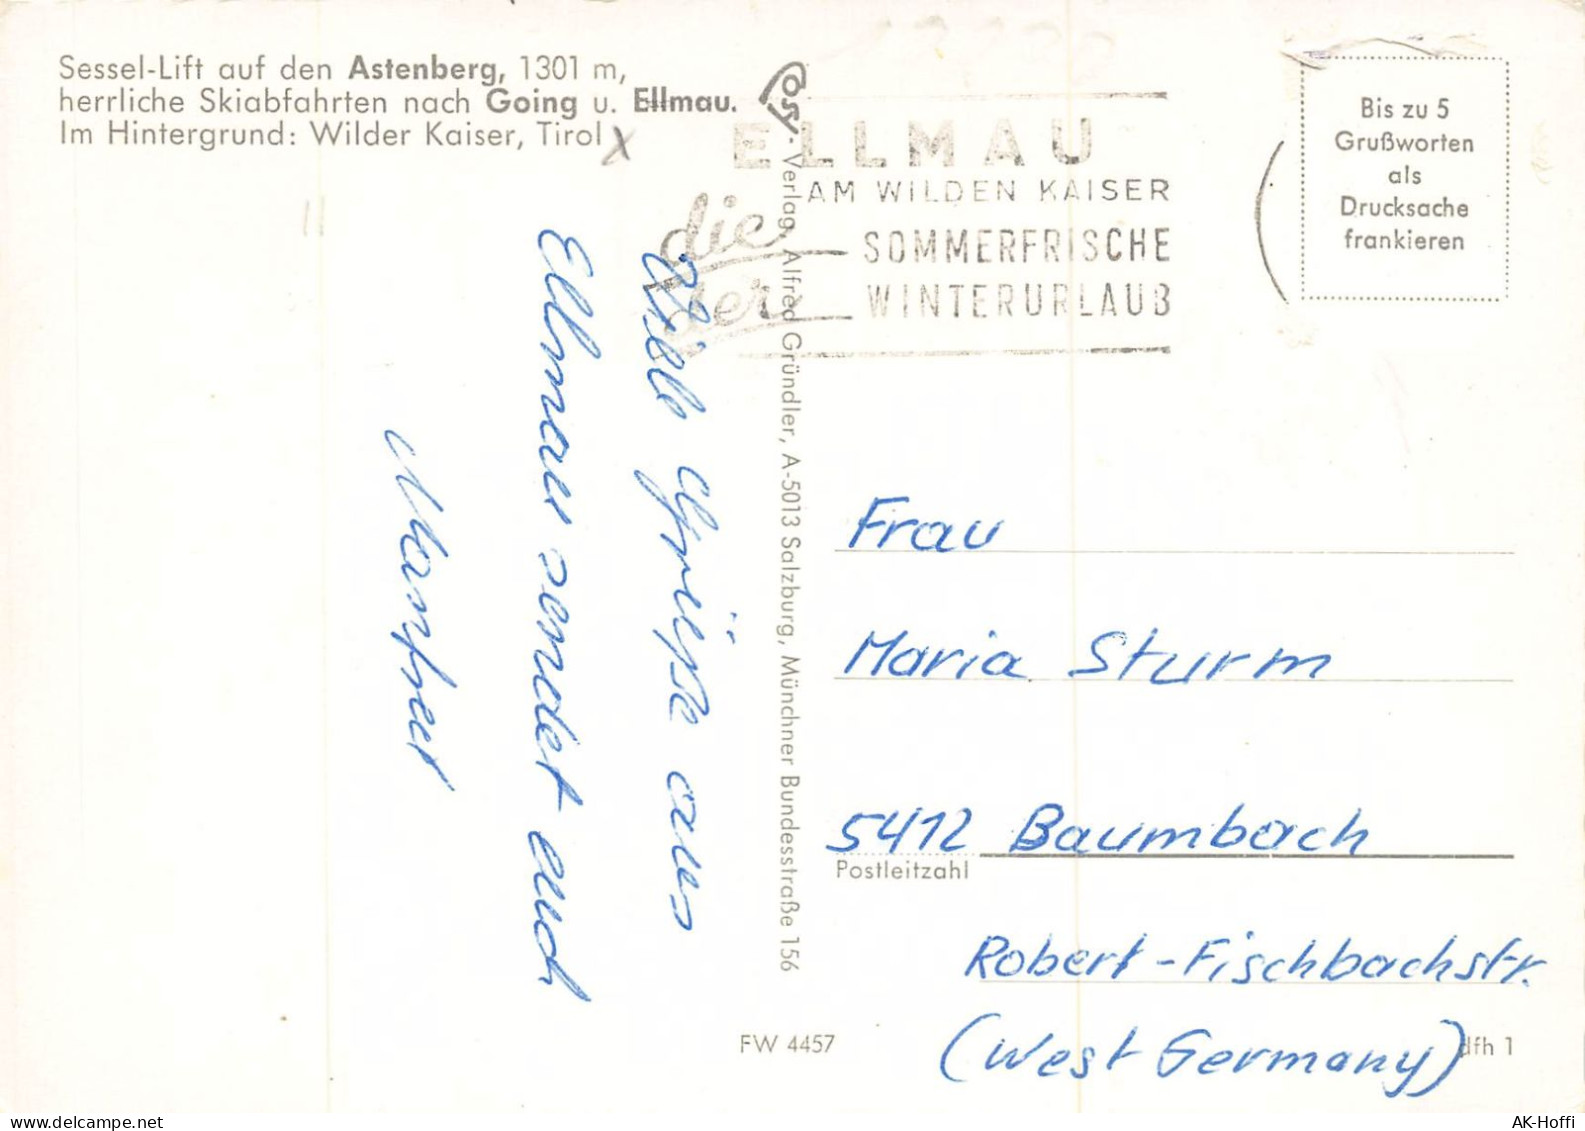 Sessel-Lift auf den Astenberg, 1301 m,
herrliche Skiabfahrten nach Going u. Ellmau.
Im Hintergrund: Wilder Kaiser, Tirol
ELLMAU
AM WILDEN KAISER
die SOMMERFRISCHE
der WINTERURLAUB
Bis zu 5
Grußworten
als
Drucksache
frankieren
Viele Grüße aus
Ellmau sendet euch
Manfred
Verlag Alfred Gründler, A-5013 Salzburg, Münchner Bundesstraße 156
Frau
Maria Sturm
5412 Baumbach
Postleitzahl
Robert-Fischbachstr.
(West Germany)
FW 4457
dfh 1
www.delcampe.net
AK-Hoffi